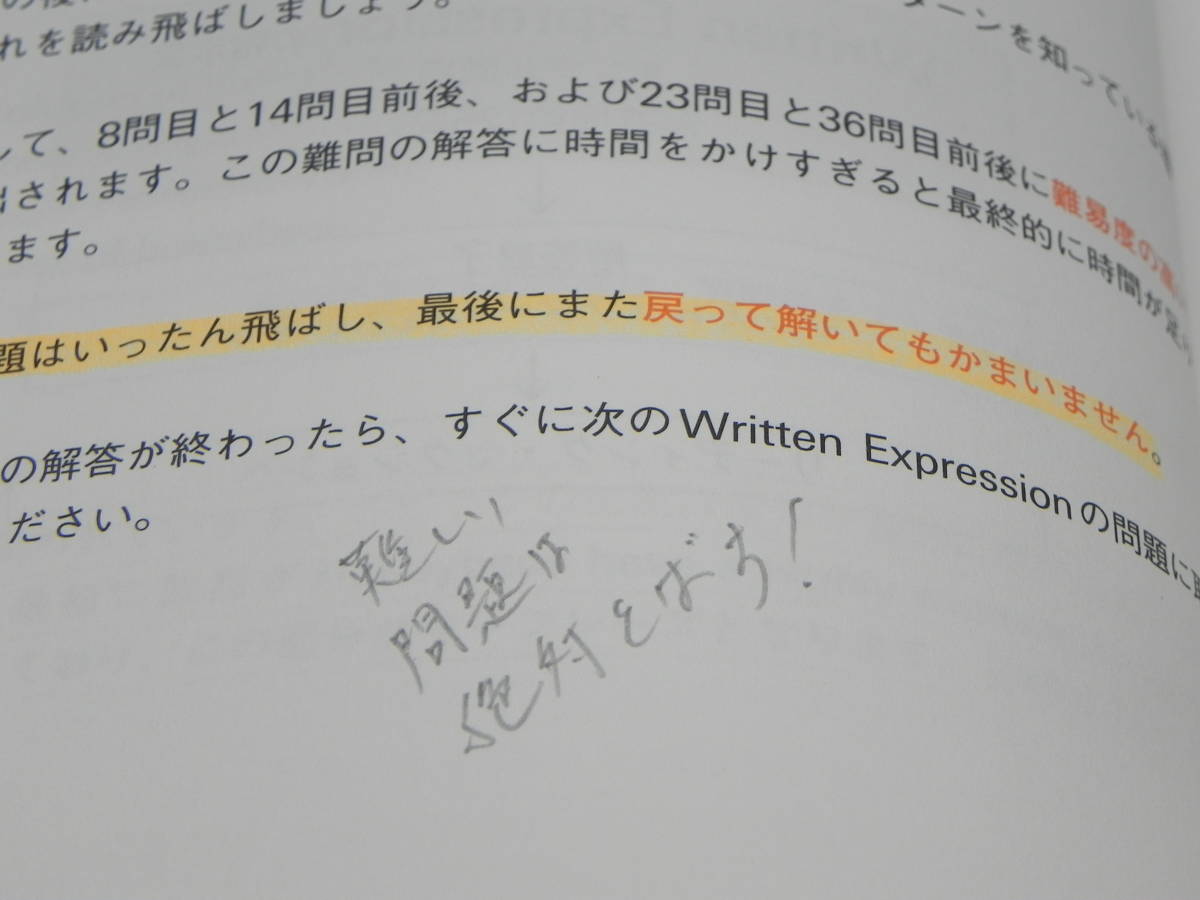 れを読み飛ばしましょう。
ターンを知っている
して、8問目と14問目前後、および23問目と36問目前後に難易度の高
出されます。この難問の解答に時間をかけすぎると最終的に時間が足り
ます。
題はいったん飛ばし、最後にまた戻って解いてもかまいません。
の解答が終わったら、すぐに次のWritten Expressionの問題に
ださい。
難しい
問題は
絶対とばす!